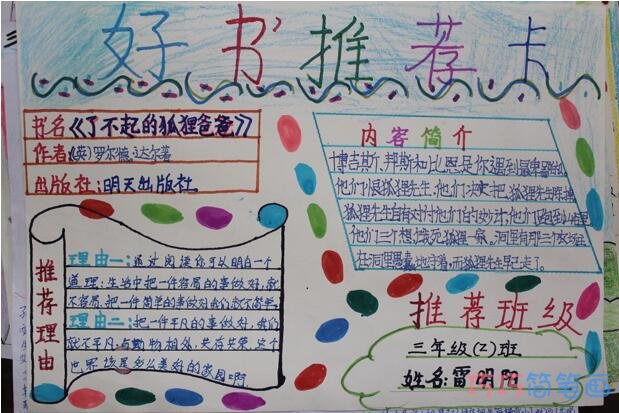 好书推荐卡
书名《了不起的狐狸爸爸》
作者:(英)罗尔德.达尔著
出版社:明天出版社.
内容简介
博吉斯、邦斯和比恩是你遇到最卑鄙的
他们恨狐狸先生,他们决定把狐狸先生
狐狸先生自有对付他们自的妙计,他们
他们三个想饿死狐狸一窝。洞里有
在洞里愚蠢地守着,而狐狸先生早已走了。
推荐理由
理由一:通过阅读你可以明白一个
道理:生活中把一件容易的事做好,就
不容易,把一件简单的事做好,我们就不简单,
理由二:把一件平凡的事做好,我们
就不平凡,与动物相处,共存共荣,这个
世界该是多么美好的家园啊
推荐班级
三年级(2)班
姓名:雷明阳
简笔画